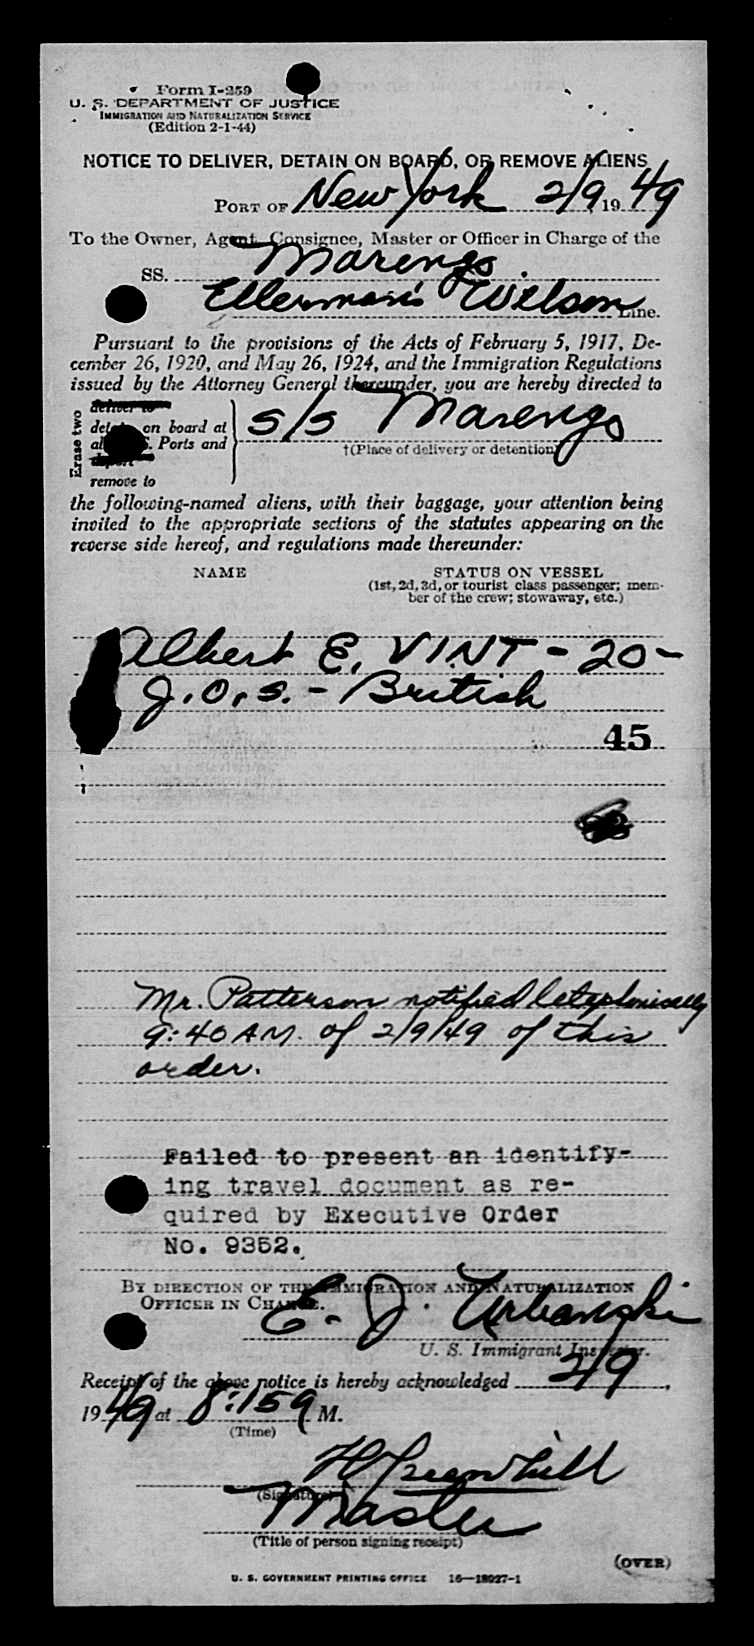 Form I-259
U. S. DEPARTMENT OF JUSTICE
IMMIGRATION AND NATURALIZATION SERVICE
(Edition 2-1-44)
NOTICE TO DELIVER, DETAIN ON BOARD, OR REMOVE ALIENS
PORT OF New York 2/9 1949
To the Owner, Agent, Consignee, Master or Officer in Charge of the
SS. Marengo
Ellerman's Wilson Line.
Pursuant to the provisions of the Acts of February 5, 1917, De-
cember 26, 1920, and May 26, 1924, and the Immigration Regulations
issued by the Attorney General thereunder, you are hereby directed to
Erase two
deliver to
detain on board at
S. Ports and
remove to
s/s Marengo
†(Place of delivery or detention)
the following-named aliens, with their baggage, your attention being
invited to the appropriate sections of the statutes appearing on the
reverse side hereof, and regulations made thereunder:
NAME STATUS ON VESSEL
(1st, 2d, 3d, or tourist class passenger; mem-
ber of the crew; stowaway, etc.)
Albert E. VINT - 20 -
J.O.S. - British
45
Mr. Patterson notified telephonically
9:40 AM. of 2/9/49 of this
order.
Failed to present an identify-
ing travel document as re-
quired by Executive Order
No. 9352.
BY DIRECTION OF THE IMMIGRATION AND NATURALIZATION
OFFICER IN CHARGE.
E. J. Urbanski
U. S. Immigrant Inspector.
Receipt of the above notice is hereby acknowledged 2/9,
1949 at 8:15 a M.
(Time)
H Greenhill
(Signature)
Master
(Title of person signing receipt)
(OVER)
U. S. GOVERNMENT PRINTING OFFICE 16—18027-1